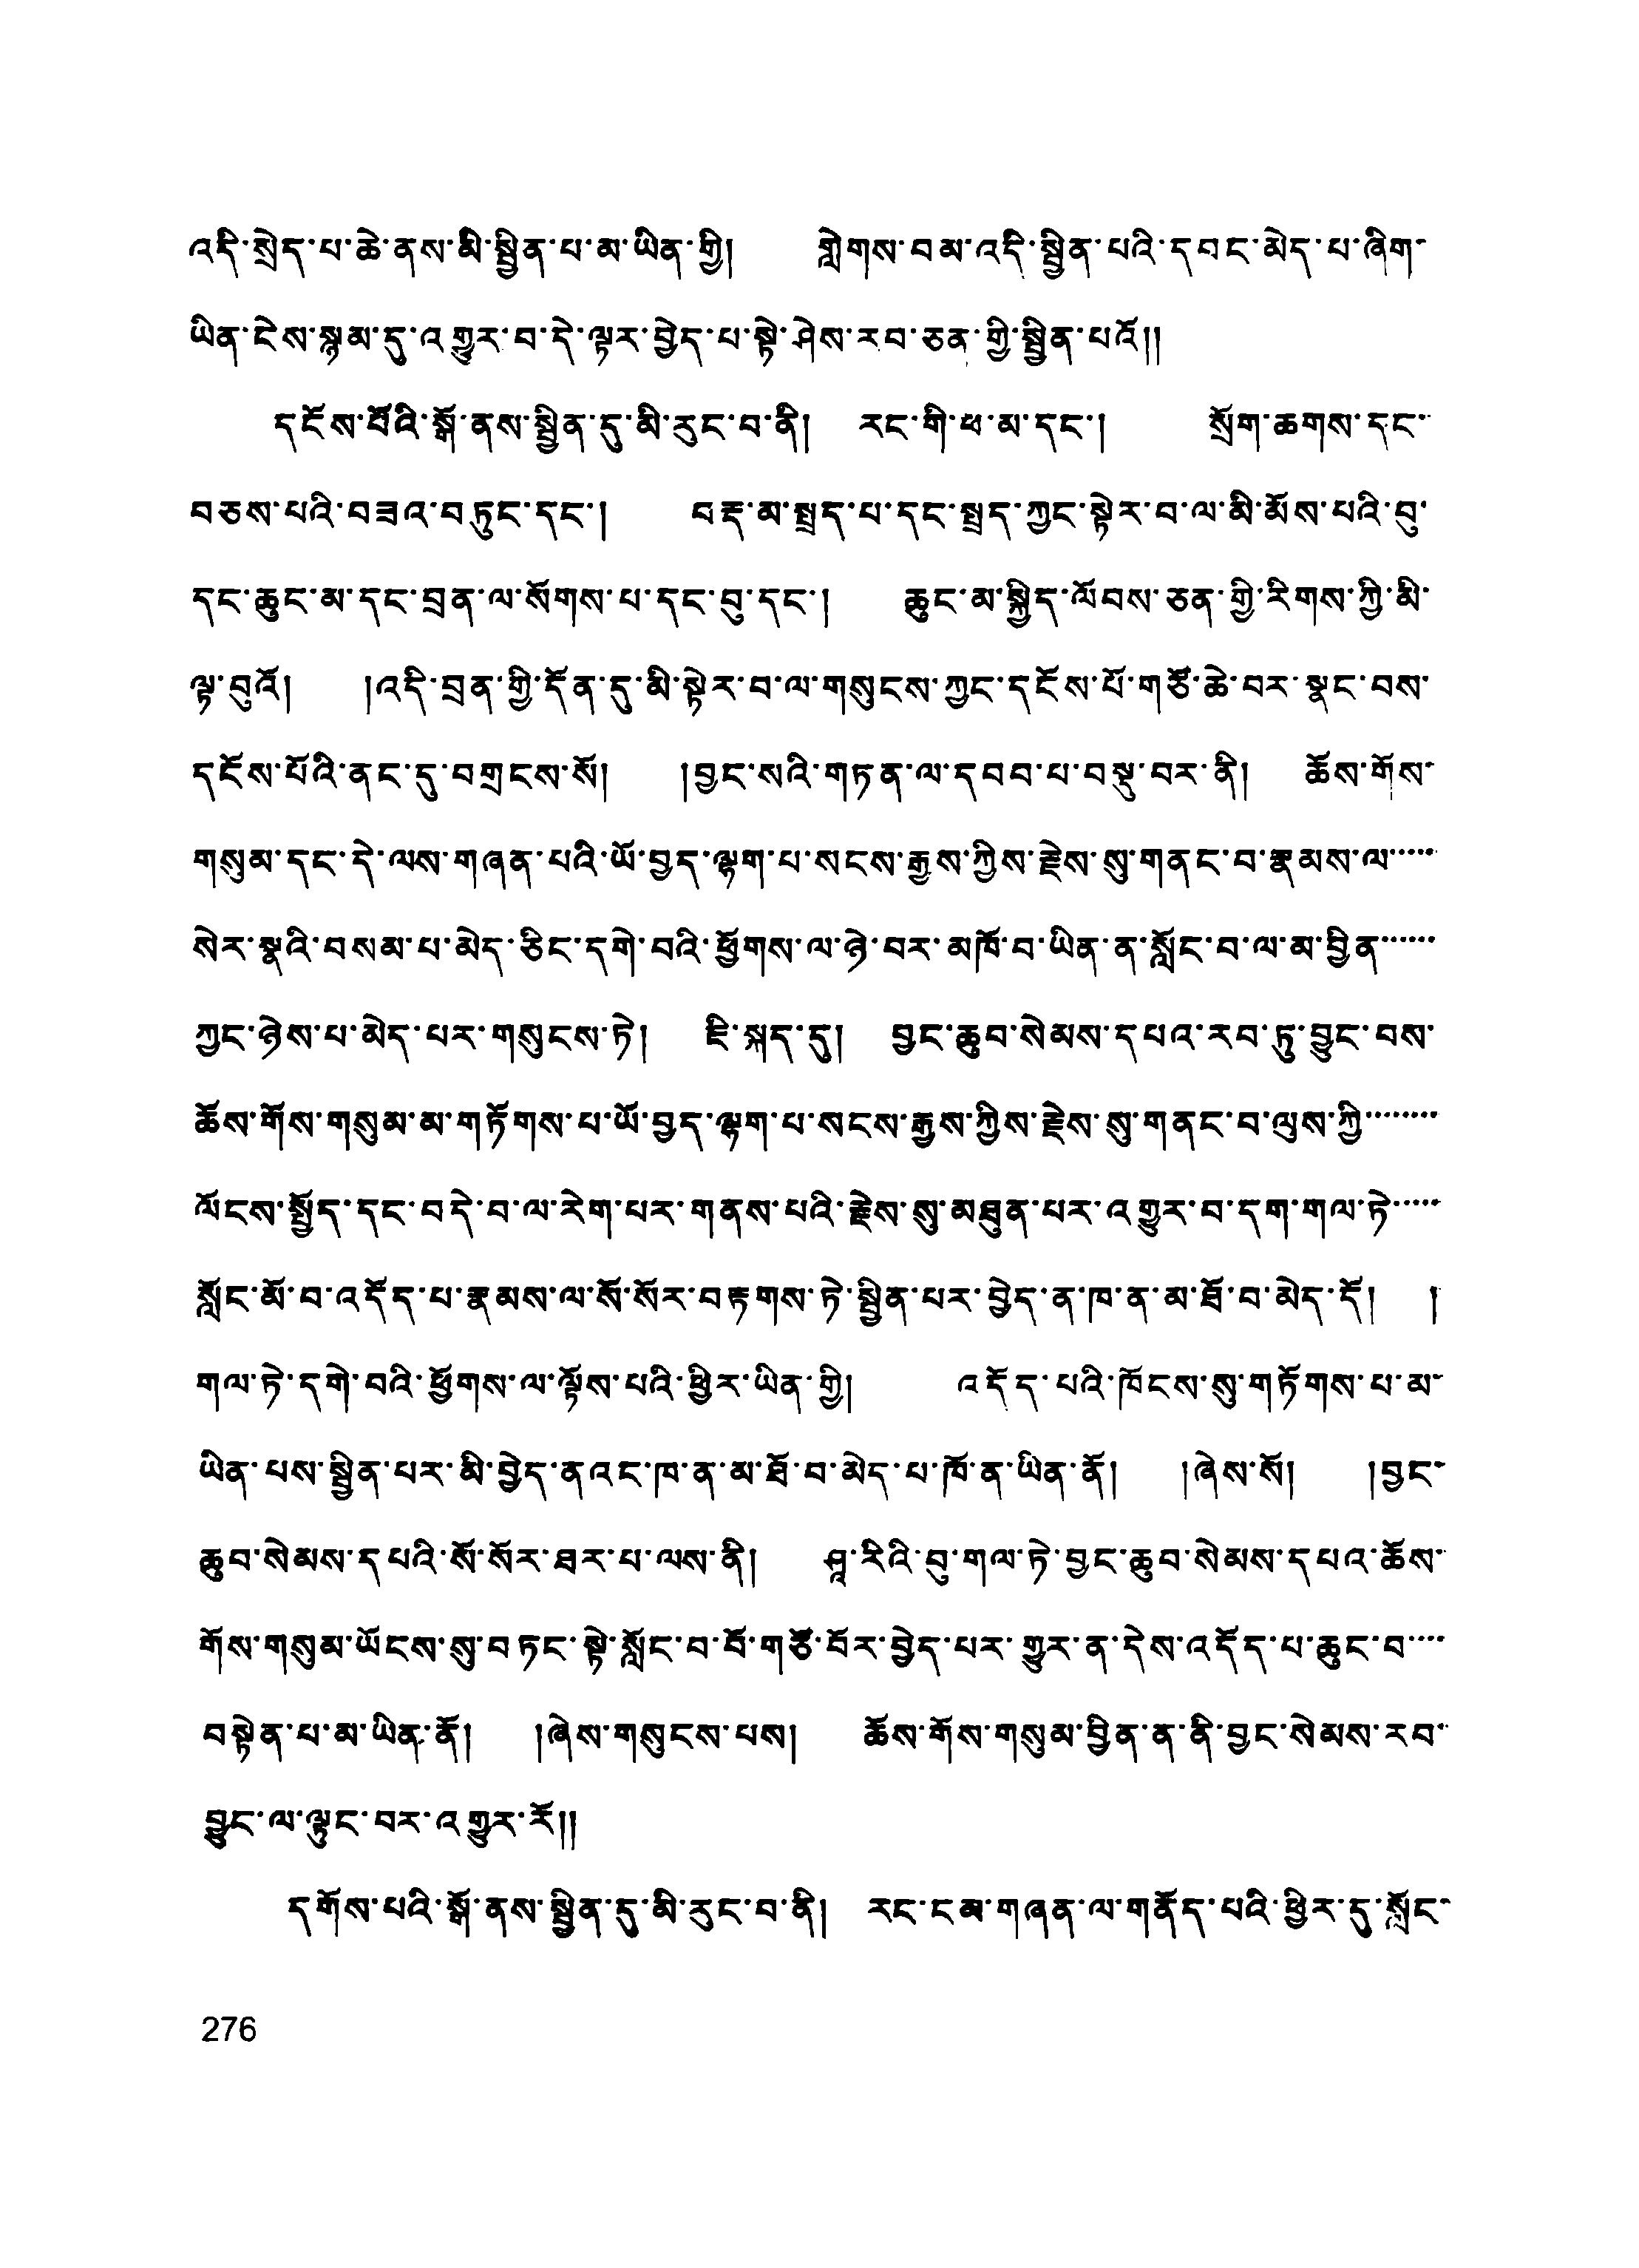 འདི་སྲེད་པ་ཆེ་ནས་མི་སྦྱིན་པ་མ་ཡིན་གྱི། གླེགས་བམ་འདི་སྦྱིན་པའི་དབང་མེད་པ་ཞིག་
ཡིན་ངེས་སྙམ་དུ་འགྱུར་བ་དེ་ལྟར་བྱེད་པ་སྟེ་ཤེས་རབ་ཅན་གྱི་སྦྱིན་པའོ།།
དངོས་པོའི་སྒོ་ནས་སྦྱིན་དུ་མི་རུང་བ་ནི། རང་གི་ཕ་མ་དང་། སྲོག་ཆགས་དང་
བཅས་པའི་བཟའ་བཏུང་དང་། བརྡ་མ་སྤྲད་པ་དང་སྤྲད་ཀྱང་སྟེར་བ་ལ་མི་མོས་པའི་བུ་
དང་ཆུང་མ་དང་བྲན་ལ་སོགས་པ་དང་བུ་དང་། ཆུང་མ་སྐྱིད་ལོབས་ཅན་གྱི་རིགས་ཀྱི་མི་
ལྟ་བུའོ། །འདི་བྲན་གྱི་དོན་དུ་མི་སྟེར་བ་ལ་གསུངས་ཀྱང་དངོས་པོ་གཙོ་ཆེ་བར་སྣང་བས་
དངོས་པོའི་ནང་དུ་བགྲངས་སོ། །བྱང་སའི་གཏན་ལ་དབབ་པ་བསྡུ་བར་ནི། ཆོས་གོས་
གསུམ་དང་དེ་ལས་གཞན་པའི་ཡོ་བྱད་ལྷག་པ་སངས་རྒྱས་ཀྱིས་རྗེས་སུ་གནང་བ་རྣམས་ལ་་་་་་
སེར་སྣའི་བསམ་པ་མེད་ཅིང་དགེ་བའི་ཕྱོགས་ལ་ཉེ་བར་མཁོ་བ་ཡིན་ན་སློང་བ་ལ་མ་བྱིན་་་་་་
ཀྱང་ཉེས་པ་མེད་པར་གསུངས་ཏེ། ཇི་སྐད་དུ། བྱང་ཆུབ་སེམས་དཔའ་རབ་ཏུ་བྱུང་བས་
ཆོས་གོས་གསུམ་མ་གཏོགས་པ་ཡོ་བྱད་ལྷག་པ་སངས་རྒྱས་ཀྱིས་རྗེས་སུ་གནང་བ་ལུས་ཀྱི་་་་་་་་
ལོངས་སྤྱོད་དང་བདེ་བ་ལ་རེག་པར་གནས་པའི་རྗེས་སུ་མཐུན་པར་འགྱུར་བ་དག་གལ་ཏེ་་་་་་
སློང་མོ་བ་འདོད་པ་རྣམས་ལ་སོ་སོར་བརྟགས་ཏེ་སྦྱིན་པར་བྱེད་ན་ཁ་ན་མ་ཐོ་བ་མེད་དོ། །
གལ་ཏེ་དགེ་བའི་ཕྱོགས་ལ་ལྟོས་པའི་ཕྱིར་ཡིན་གྱི། འདོད་པའི་ཁོངས་སུ་གཏོགས་པ་མ་
ཡིན་པས་སྦྱིན་པར་མི་བྱེད་ནའང་ཁ་ན་མ་ཐོ་བ་མེད་པ་ཁོ་ན་ཡིན་ནོ། །ཞེས་སོ། །བྱང་
ཆུབ་སེམས་དཔའི་སོ་སོར་ཐར་པ་ལས་ནི། ཤཱ་རིའི་བུ་གལ་ཏེ་བྱང་ཆུབ་སེམས་དཔའ་ཆོས་
གོས་གསུམ་ཡོངས་སུ་བཏང་སྟེ་སློང་བ་བོ་གཙོ་བོར་བྱེད་པར་གྱུར་ན་དེས་འདོད་པ་ཆུང་བ་་་་
བསྟེན་པ་མ་ཡིན་ནོ། །ཞེས་གསུངས་པས། ཆོས་གོས་གསུམ་བྱིན་ན་ནི་བྱང་སེམས་རབ་
བྱུང་ལ་ལྟུང་བར་འགྱུར་རོ།།
དགོས་པའི་སྒོ་ནས་སྦྱིན་དུ་མི་རུང་བ་ནི། རང་ངམ་གཞན་ལ་གནོད་པའི་ཕྱིར་དུ་སློང་
276